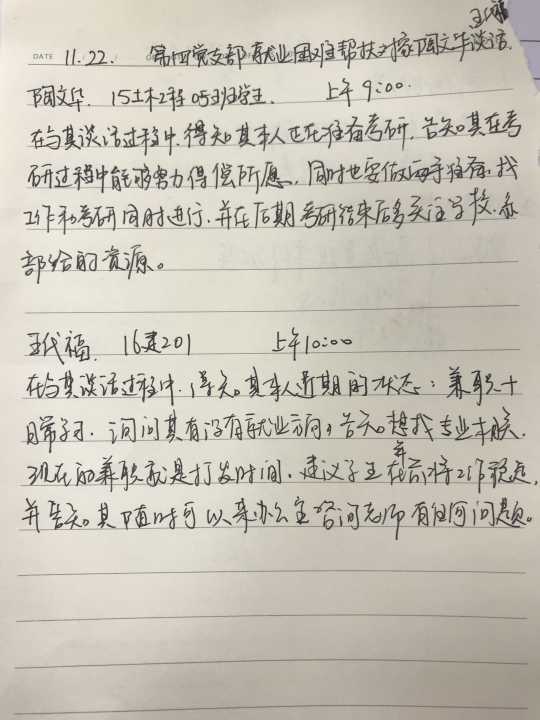 王代福
DATE 11.22. 第四党支部就业困难帮扶对象陶文华谈话.
陶文华. 15土木工程05班学生. 上午9:00.
在与其谈话过程中,得知其本人正在准备考研,告知其在考
研过程中能够努力得偿所愿,同时也要做两手准备,找
工作和考研同时进行,并在后期考研结束后多关注学校,系
部给的资源。
王代福. 16建201 上午10:00
在与其谈话过程中,得知其本人近期的状态:兼职+
日常学习.询问其有没有就业方向,告知想找专业相关,
现在的兼职就是打发时间.建议学生在年前将工作稳定,
并告知其随时可以来办公室咨询老师有任何问题。